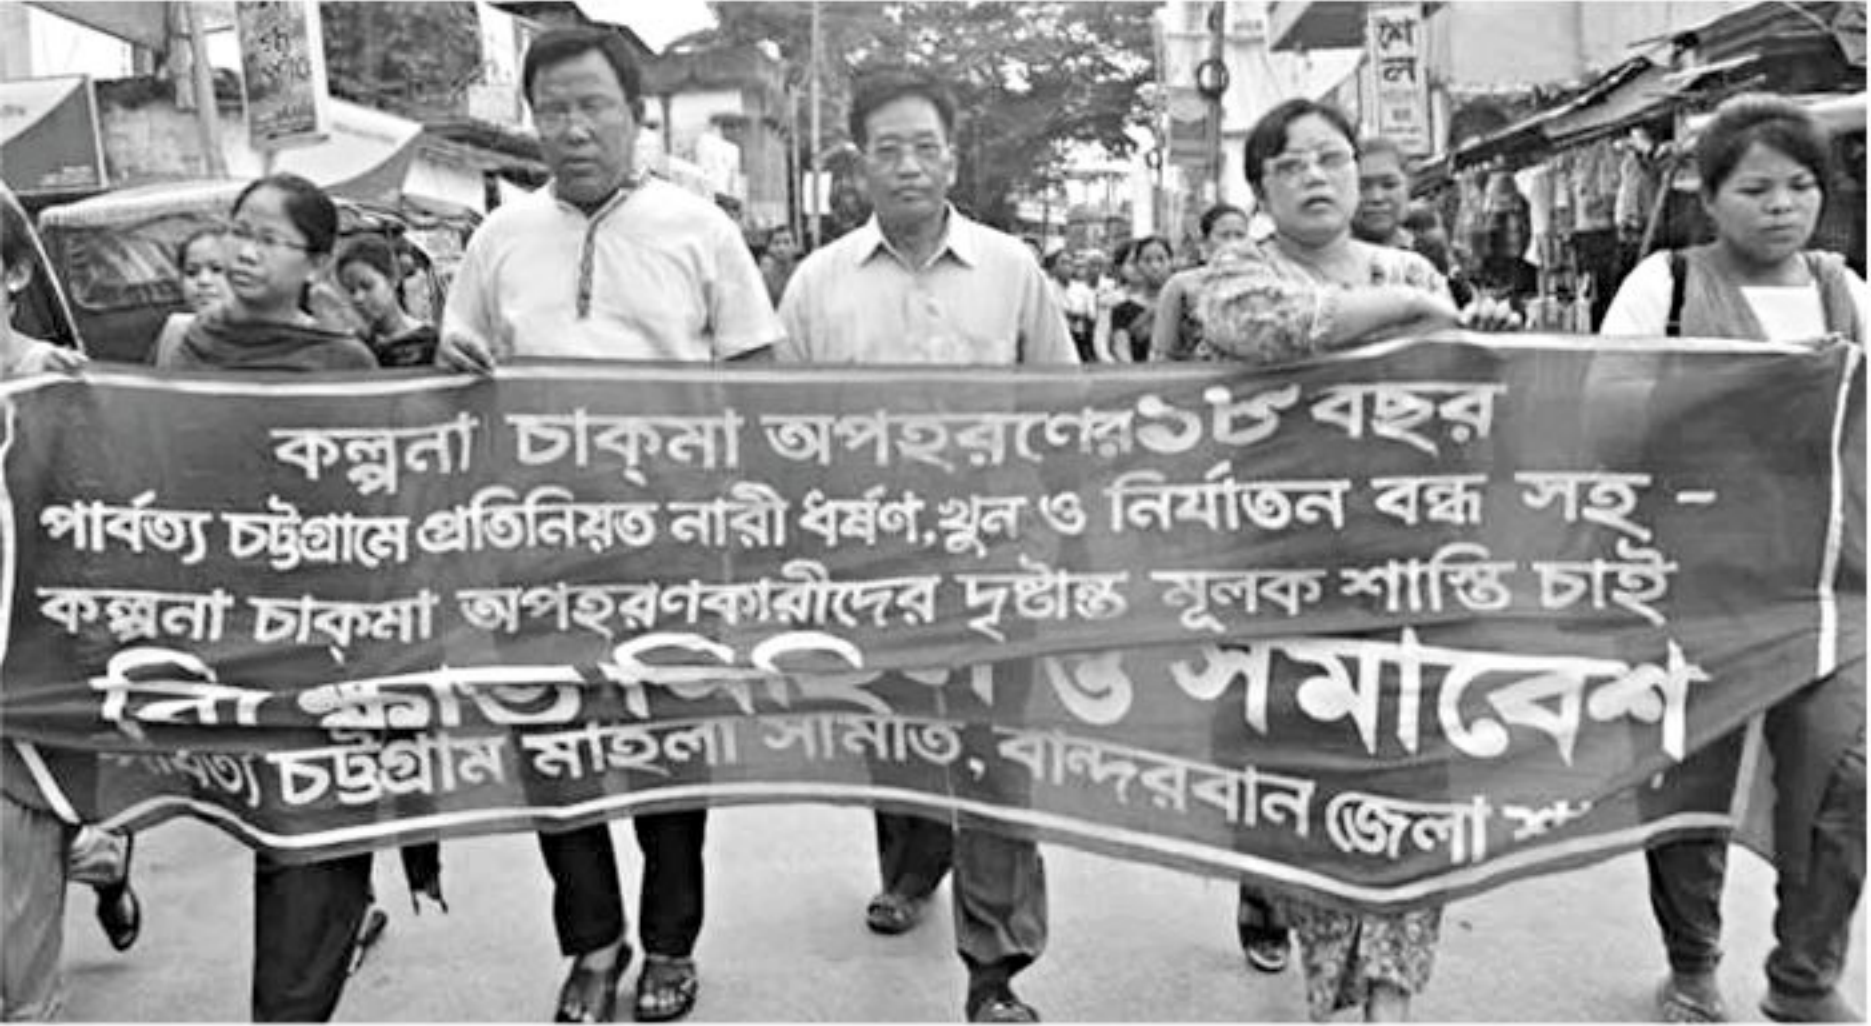 শৈল
কল্পনা চাক্‌মা অপহরণের ১৮ বছর
পার্বত্য চট্টগ্রামে প্রতিনিয়ত নারী ধর্ষণ, খুন ও নির্যাতন বন্ধ সহ -
কল্পনা চাক্‌মা অপহরণকারীদের দৃষ্টান্ত মূলক শাস্তি চাই
ও সমাবেশ
পার্বত্য চট্টগ্রাম মহিলা সমিতি, বান্দরবান জেলা